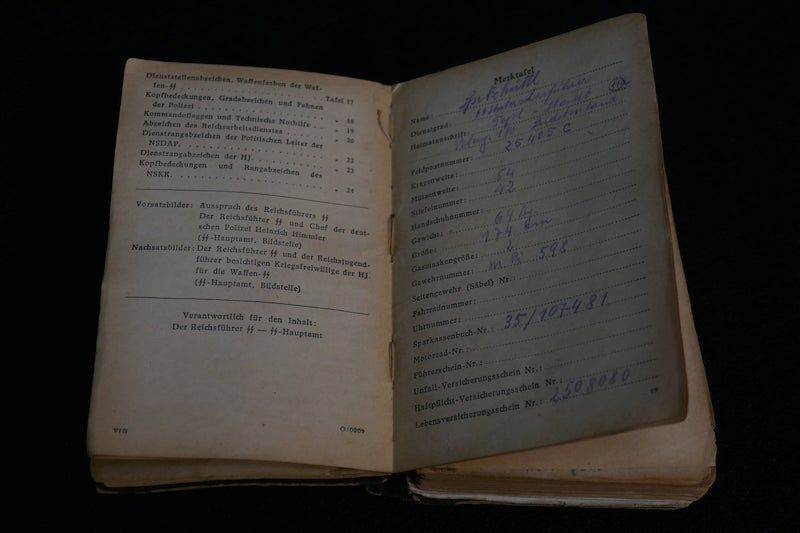 Dienststellenabzeichen, Waffenfarben der Waf-
fen-ᛋᛋ . . . . . . . . . . . . . . Tafel 17
Kopfbedeckungen, Gradabzeichen und Fahnen
der Polizei . . . . . . . . . . . . . . „ 18
Kommandoflaggen und Technische Nothilfe . . „ 19
Abzeichen des Reichsarbeitsdienstes . . . . . „ 20
Dienstrangabzeichen der Politischen Leiter der
NSDAP. . . . . . . . . . . . . . . . „ 22
Dienstrangabzeichen der HJ. . . . . . . . . „ 23
Kopfbedeckungen und Rangabzeichen des
NSKK. . . . . . . . . . . . . . . . „ 24
Vorsatzbilder: Ausspruch des Reichsführers ᛋᛋ
Der Reichsführer ᛋᛋ und Chef der deut-
schen Polizei Heinrich Himmler
(ᛋᛋ-Hauptamt, Bildstelle)
Nachsatzbilder: Der Reichsführer ᛋᛋ und der Reichsjugend-
führer besichtigen Kriegsfreiwillige der HJ.
für die Waffen-ᛋᛋ
(ᛋᛋ-Hauptamt, Bildstelle)
Verantwortlich für den Inhalt:
Der Reichsführer ᛋᛋ — ᛋᛋ-Hauptamt
VIII
O/0904
Merktafel
Name:
Dienstgrad:
Heimatanschrift:
Feldpostnummer: 25405 C
Kragenweite:
Mützenweite: 54
Stiefelnummer: 42
Handschuhnummer:
Gewicht: 64 kg
Größe: 174 cm
Gasmaskengröße: 2
Gewehrnummer: 598
Seitengewehr (Säbel) Nr.:
Fahrradnummer:
Uhrnummer:
Sparkassenbuch-Nr.: 35/107481
Motorrad-Nr.:
Führerschein-Nr.:
Unfall-Versicherungsschein Nr.:
Haftpflicht-Versicherungsschein Nr.:
Lebensversicherungsschein Nr.: 2508080